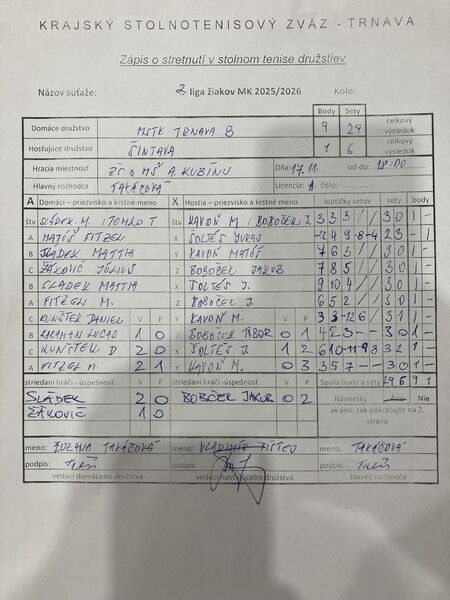 KRAJSKÝ STOLNOTENISOVÝ ZVÄZ - TRNAVA
Zápis o stretnutí v stolnom tenise družstiev
Názov súťaže: 2. liga žiakov MK 2025/2026 Kolo:
Body Sety
Domáce družstvo MSTK TRNAVA B 9 29 celkový výsledok
Hosťujúce družstvo ŠINTAVA 1 6 celkový výsledok
Hracia miestnosť ZŠ s MŠ A KUBÍNU Dňa: 17.11. od-do: 18:00
Hlavný rozhodca TAKÁČOVÁ Licencia 1. číslo:
A Domáci - priezvisko a krstné meno X Hostia - priezvisko a krstné meno loptičky setov sety body
štv SLÁDEK M. ; TOMKO T štv KAVOŇ M ; BOBOČEK J. 3 3 3 / / 3 0 1 -
A MATÚŠ FITZEL X ŠOLTÉS JURAJ 9 -8 -4 2 3 - 1
B SLÁDEK MATTIA Y KAVOŇ MATÚŠ 7 6 3 / / 3 0 1 -
C ŽÁKOVIC JÚLIUS Z BOBOČEK JAKUB 7 8 5 / / 3 0 1 -
B SLÁDEK MATTIA X ŠOLTÉS J. 9 10 4 / / 3 0 1 -
A FITZEL M. Z BOBOČEK J. 6 5 2 / / 3 0 1 -
C KUNŠTEK DANIEL V P Y KAVOŇ M. V P 3 3 -12 6 / 3 1 1 -
B LUCAS 1 0 Z BOBOČEK TIBOR 0 1 4 2 3 - - 3 0 1 -
C KUNŠTEK D 2 0 X ŠOLTÉS J. 1 2 6 10 -11 -9 8 3 2 1 -
A FITZEL M. 2 1 Y KAVOŇ M. 0 3 3 5 7 - - 3 0 1 -
striedaní hráči - úspešnosť V P striedaní hráči - úspešnosť V P Spolu body a sety 29 6 9 1
SLÁDEK 2 0 BOBČEK JAKUB 0 2 Námietky Áno Nie
ŽÁKOVIC 1 0 ak áno, tak pokračujte na 2. strane
meno: ZUZANA TAKÁČOVÁ meno: VLADIMÍR meno: TAKÁČOVÁ
podpis: podpis: podpis:
vedúci domáceho družstva vedúci hosťujúceho družstva hlavný rozhodca